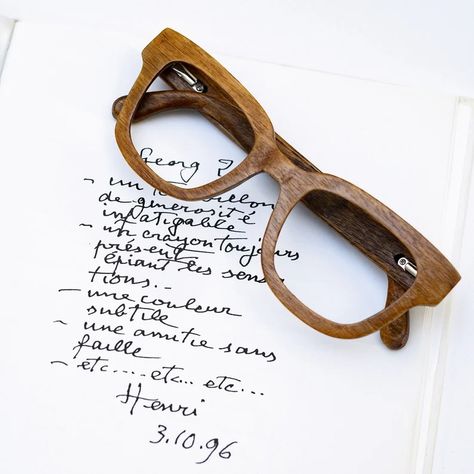 Georg
- un
de générosité
infatigable
- un crayon toujours
présent
épiant les sensa
tions..
- une couleur
subtile
- une amitié sans
faille
- etc.....etc... etc...
Henri
3.10.96